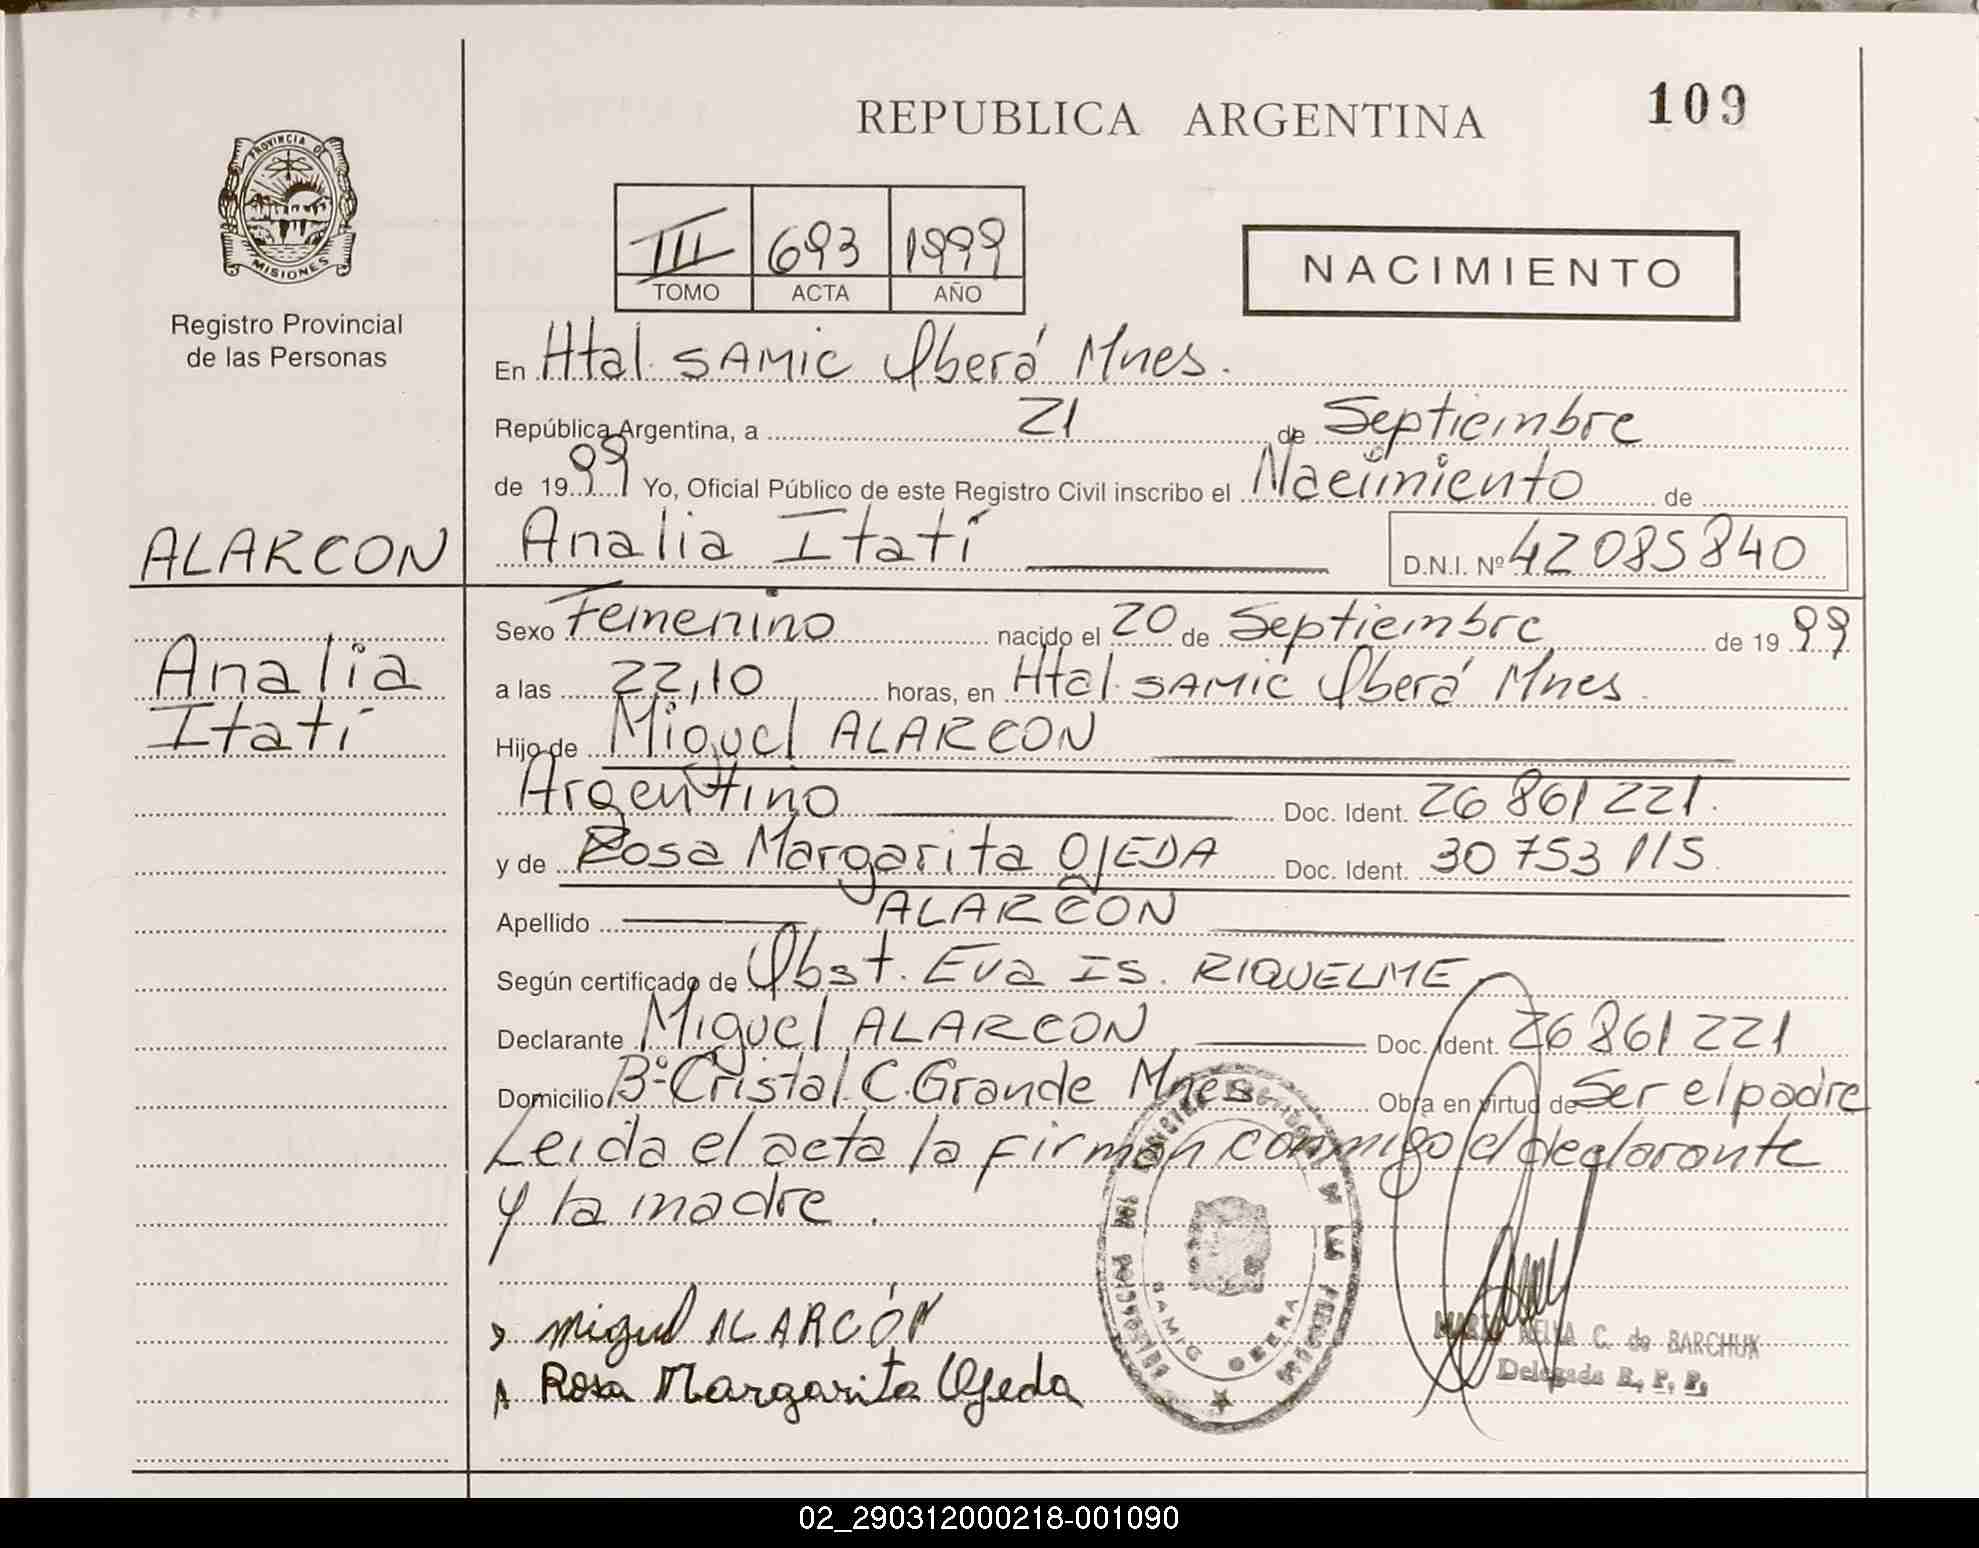 REPUBLICA ARGENTINA
109
PROVINCIA DE
MISIONES
Registro Provincial
de las Personas
III 693 1999
TOMO ACTA AÑO
NACIMIENTO
En Htal. SAMIC Oberá Mnes.
República Argentina, a 21 de Septiembre
de 1999 Yo, Oficial Público de este Registro Civil inscribo el Nacimiento de
ALARCON
Analia Itatí
D.N.I. Nº 42 085 840
Analia
Itatí
Sexo Femenino nacido el 20 de Septiembre de 1999
a las 22,10 horas, en Htal. SAMIC Oberá Mnes.
Hijo de Miguel ALARCON
Argentino Doc. Ident. 26 861 221.
y de Rosa Margarita OJEDA Doc. Ident. 30 753 115
Apellido ALARCON
Según certificado de Obst. Eva Is. RIQUELME
Declarante Miguel ALARCON Doc. Ident. 26 861 221
Domicilio Bº Cristal C. Grande Mnes Obra en virtud de Ser el padre
Leida el acta la firman conmigo el declarante
y la madre.
Miguel ALARCÓN
Rosa Margarita Ojeda
SAMIC OBERA
C. de BARCHUK
Delegada R. P. P.
02_290312000218-001090